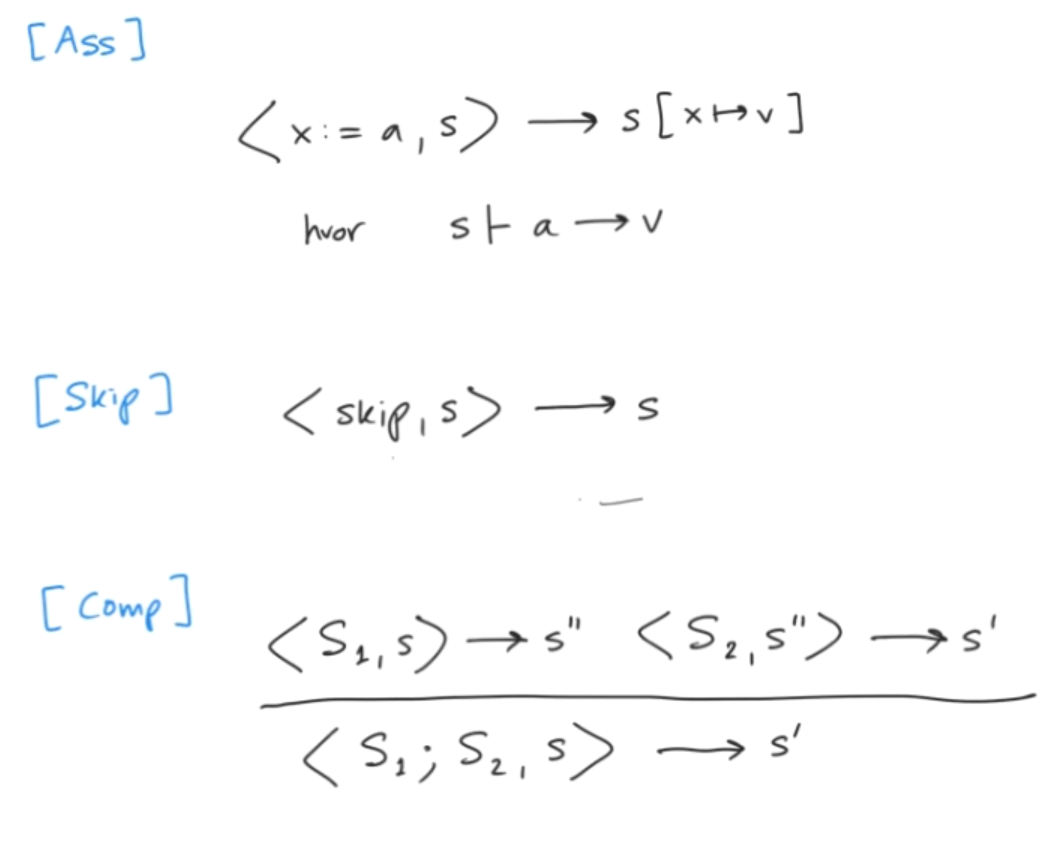 [Ass]
<x := a, s> ⟶ s[x ↦ v]
hvor s ⊢ a ⟶ v
[Skip] <skip, s> ⟶ s
[Comp]
<S₁, s> ⟶ s'' <S₂, s''> ⟶ s'
<S₁; S₂, s> ⟶ s'